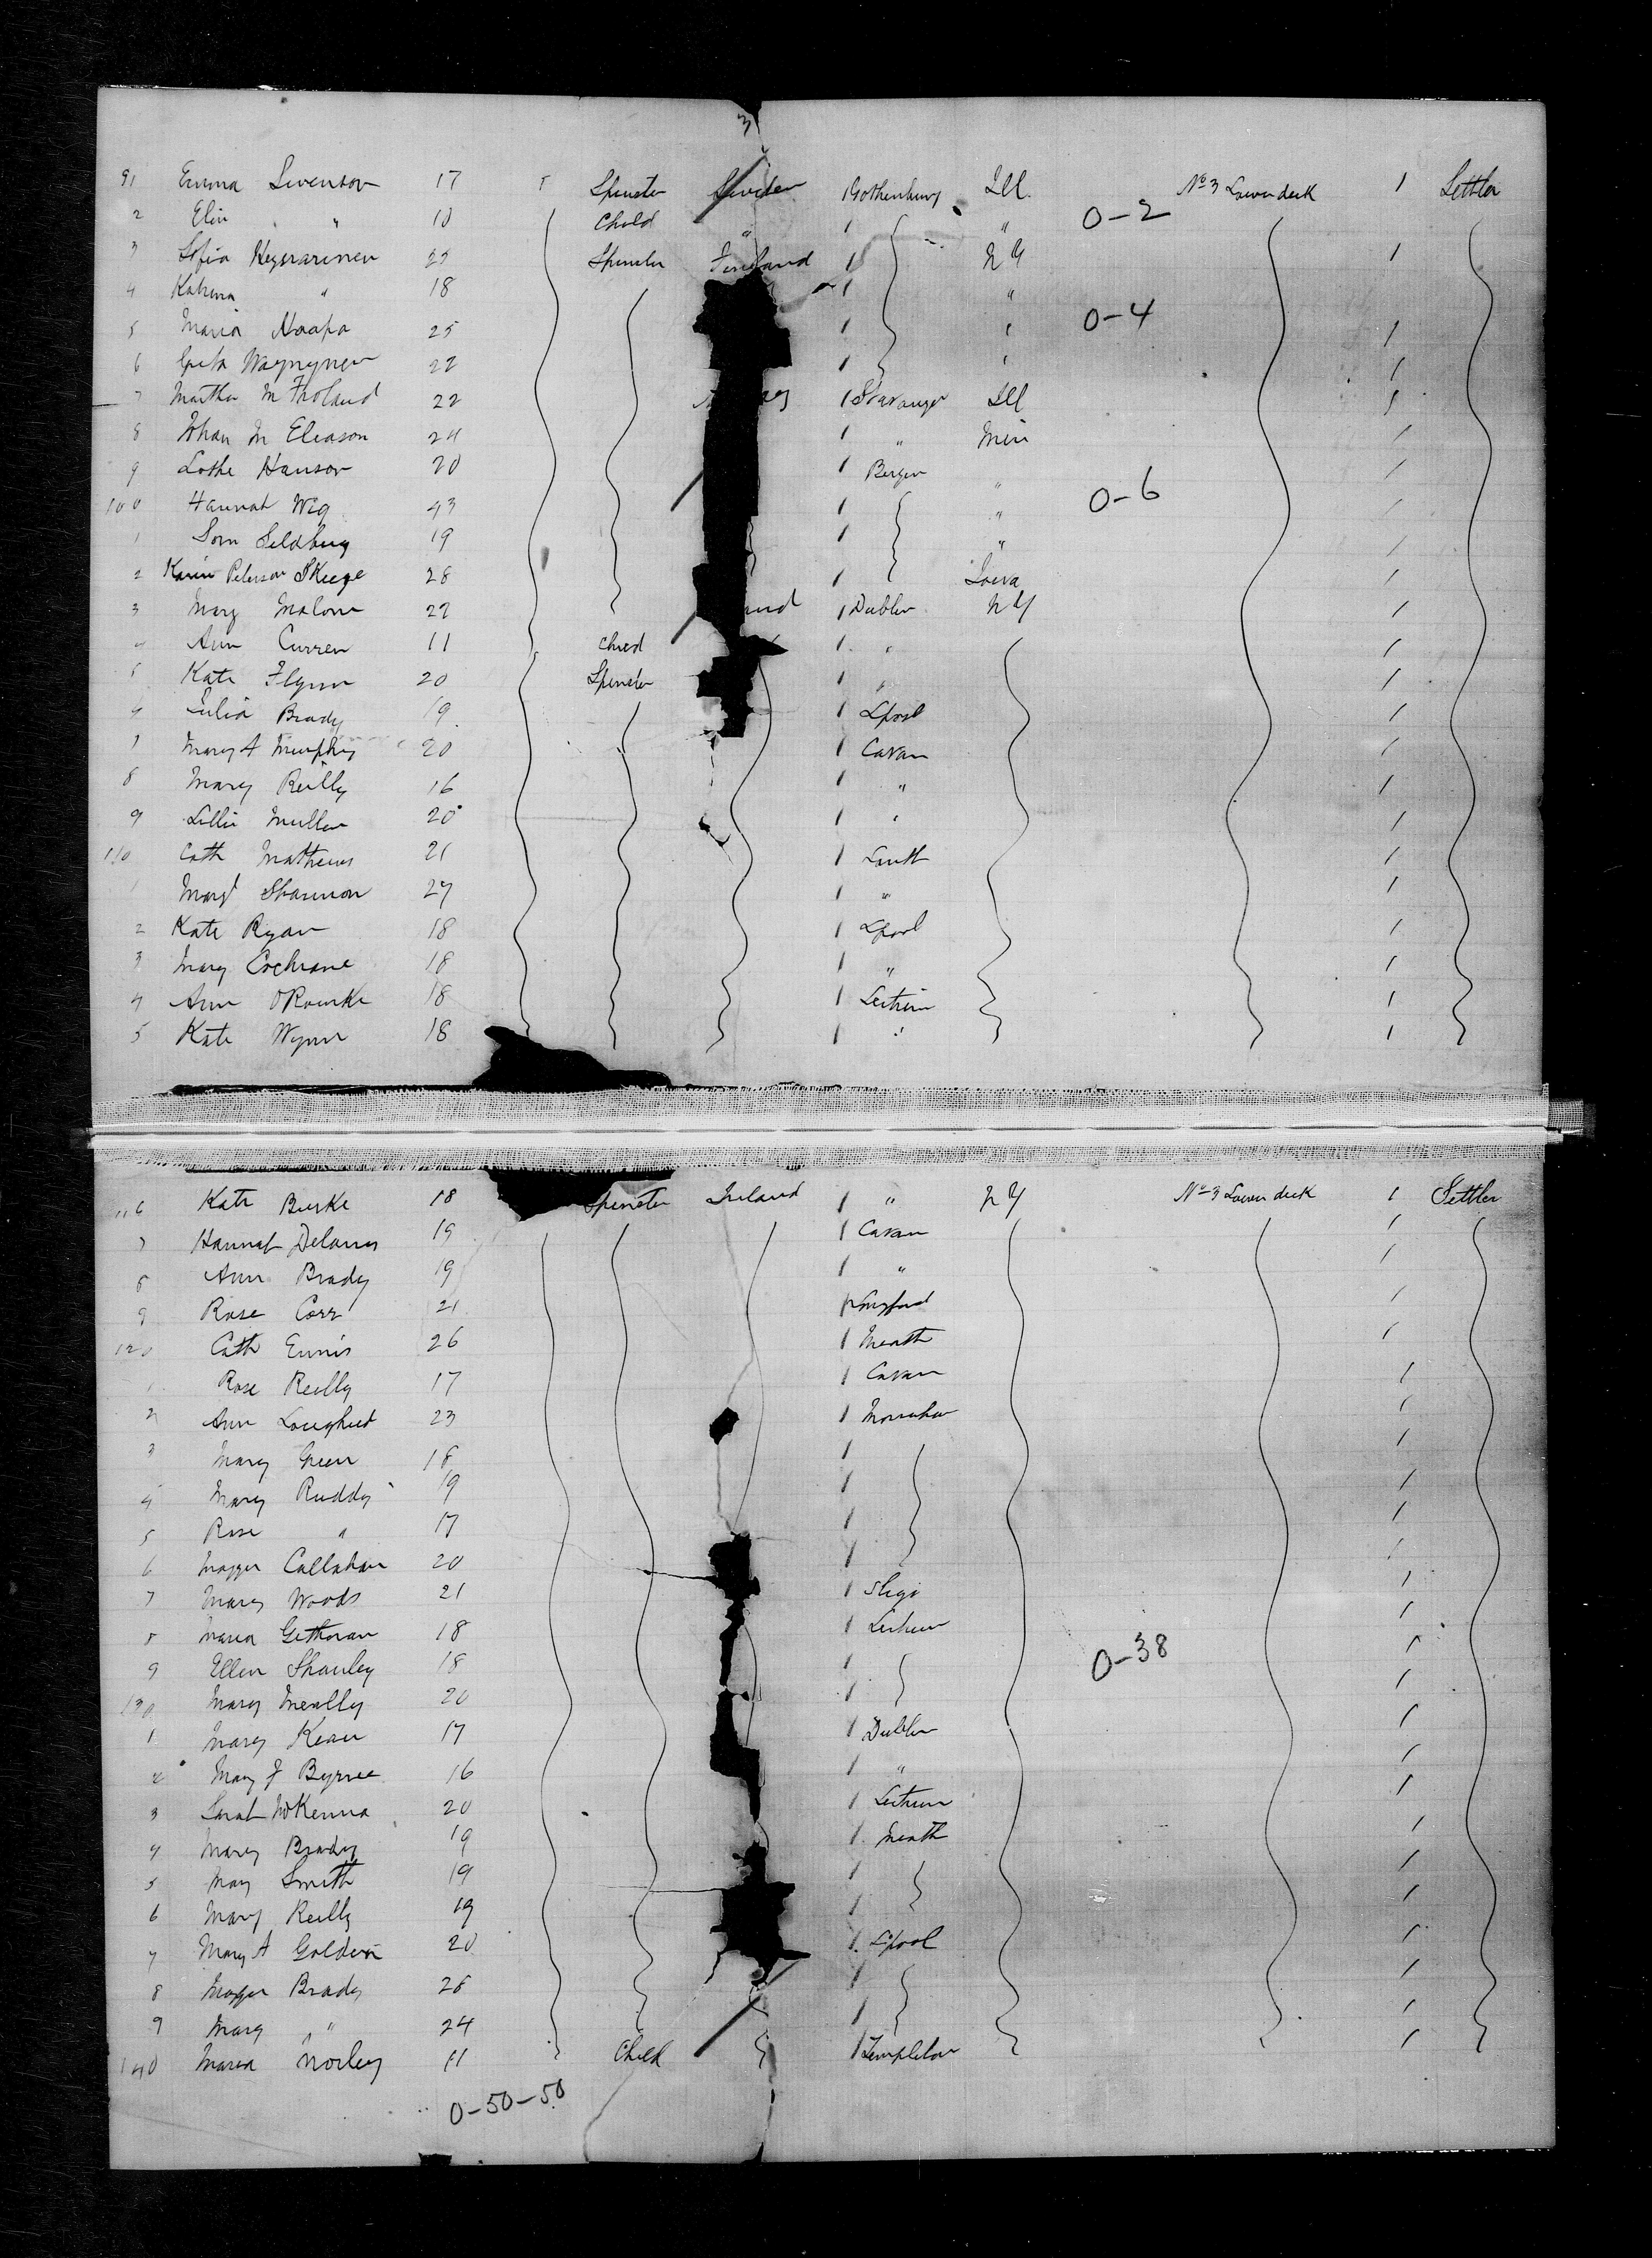 3
91 Emma Swenson 17 Spinster Sweden Gothenburg Ill. No 3 Lower deck 1 Settler
2 Elin " 10 Child " 1 " 0-2
3 Sofia 25 Spinster Finland 1 N Y 1
4 Katrina " 18 1 "
5 Maria Haapa 25 1 0-4 1
6 Greta 22 1 1
7 Martha M 22 1 Stavanger Ill 1
8 Johan M Eliason 24 1 " Min 1
9 Lothe Hanson 20 1 Bergen " 1
100 Hannah Wig 43 1 " 0-6 1
1 Sorn Seldberg 19 1 " 1
2 Karin Peterson 28 1 Iowa 1
3 Mary Malone 22 1 Dublin N Y 1
4 Ann Curren 11 Child 1 " 1
5 Kate Flynn 20 Spinster 1 " 1
6 Julia Brady 19 1 Lpool 1
7 Mary A Murphy 20 1 Cavan 1
8 Mary Reilly 16 1 " 1
9 Lillie Mullen 20 1 " 1
110 Cath Mathews 21 1 Louth 1
1 Margt Shannon 27 1 " 1
2 Kate Ryan 18 1 Lpool 1
3 Mary Cochrane 18 1 " 1
4 Ann O'Rourke 18 1 Leitrim 1
5 Kate Wynn 18 1 " 1
116 Kate Burke 18 Spinster Ireland 1 " N Y No 3 Lower deck 1 Settler
7 Hannah Delaney 19 1 Cavan 1
8 Ann Brady 19 1 " 1
9 Rose Corr 21 1 Longford 1
120 Cath Ennis 26 1 Meath 1
1 Rose Reilly 17 1 Cavan 1
2 Ann 23 1 Monahan 1
3 Mary Green 18 1 1
4 Mary Ruddy 19 1 1
5 Rose " 17 1 1
6 Maggie Callahan 20 1 1
7 Mary Woods 21 1 Sligo 1
8 Maria 18 1 Leitrim 1
9 Ellen Shanley 18 1 0-38 1
130 Mary 20 1 1
1 Mary Kean 17 1 Dublin 1
2 Mary J Byrne 16 1 " 1
3 Sarah McKenna 20 1 Leitrim 1
4 Mary Brady 19 1 Meath 1
5 Mary Smith 19 1 1
6 Mary Reilly 19 1 1
7 Mary A 20 1 Lpool 1
8 Maggie Brady 26 1 1
9 Mary " 24 1 1
140 Maria Norley 11 Child 1 Templeton 1
0-50-50